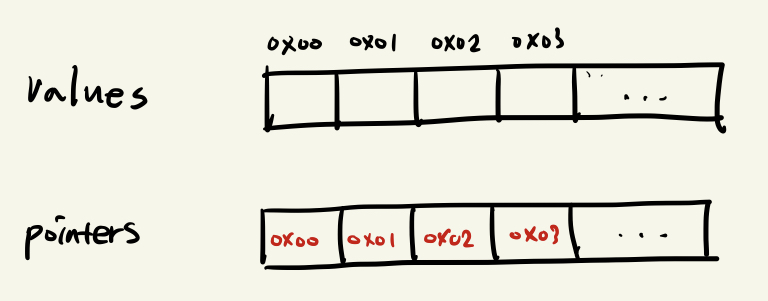 0x00 0x01 0x02 0x03
values ...
pointers 0x00 0x01 0x02 0x03 ...